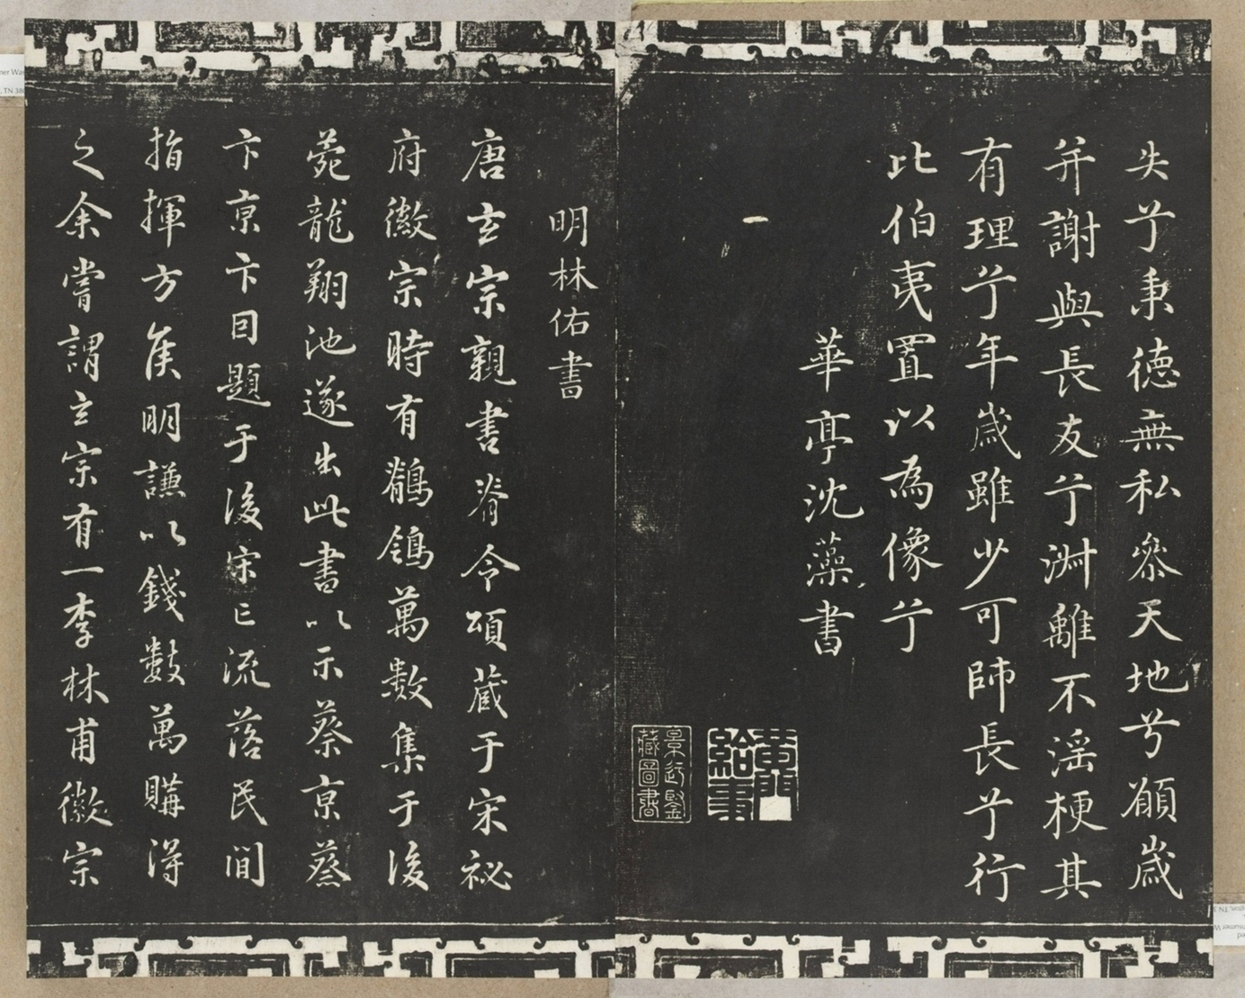 失兮秉德無私參天地兮願歲
并謝與長友兮淑離不淫梗其
有理兮年歲雖少可師長兮行
比伯夷置以為像兮
華亭沈藻書
黃門給事
明林佑書
唐玄宗親書脊令頌藏于宋祕
府徽宗時有鶺鴒萬數集于後
苑龍翔池遂出此書以示蔡京蔡
卞京卞因題于後宋亡流落民間
指揮方矦明謙以錢數萬購得
之余嘗謂玄宗有一李林甫徽宗